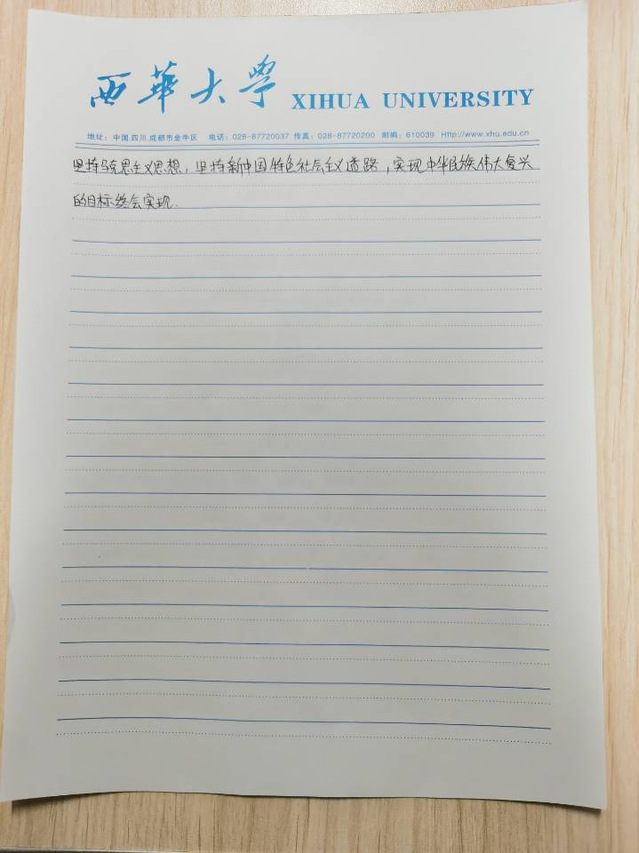 西華大學 XIHUA UNIVERSITY
地址：中国.四川.成都市金牛区 电话：028-87720037 传真：028-87720200 邮编：610039 Http://www.xhu.edu.cn
坚持马克思主义思想，坚持新中国特色社会主义道路，实现中华民族伟大复兴
的目标终会实现.